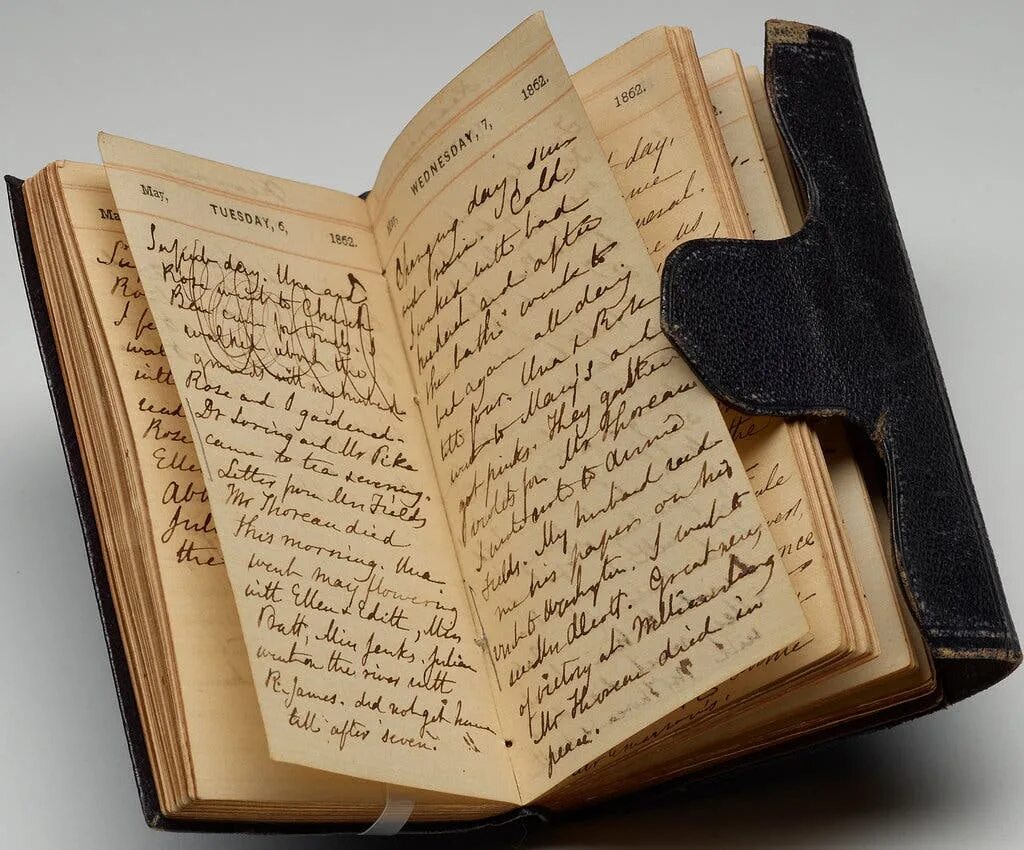 May,
TUESDAY, 6,
1862.
Superb day. Una and
Rose went to Church
walked about the
grounds with my husband
Rose and I gardened.
Dr Loring and Mr Pike
came to tea & evening.
Letter from Mrs Fields
Mr Thoreau died
this morning. Una
went May flowering
with Ellen & Edith, Miss
Bull, Miss Jenks. Julian
went on the river with
R. James. did not get home
till after seven.
WEDNESDAY, 7,
1862.
May,
Changing day, sun
and rain. Cold,
I waked with bad
headache and after
the bath went to
bed again all day
till four. Una & Rose
went to Mary's and
got pinks. They gathered
violets for Mr Thoreau
I wrote to Annie
Fields. My husband read
me his papers on his
visit to Washington. I went to
see Mrs Alcott. Great news
of victory at Williamsburg
Mr Thoreau died in
peace.
1862.
day,
me
us
the
Ma
Su
Ro
I fe
wat
with
read
Rose
Elle
Abo
Jul
the